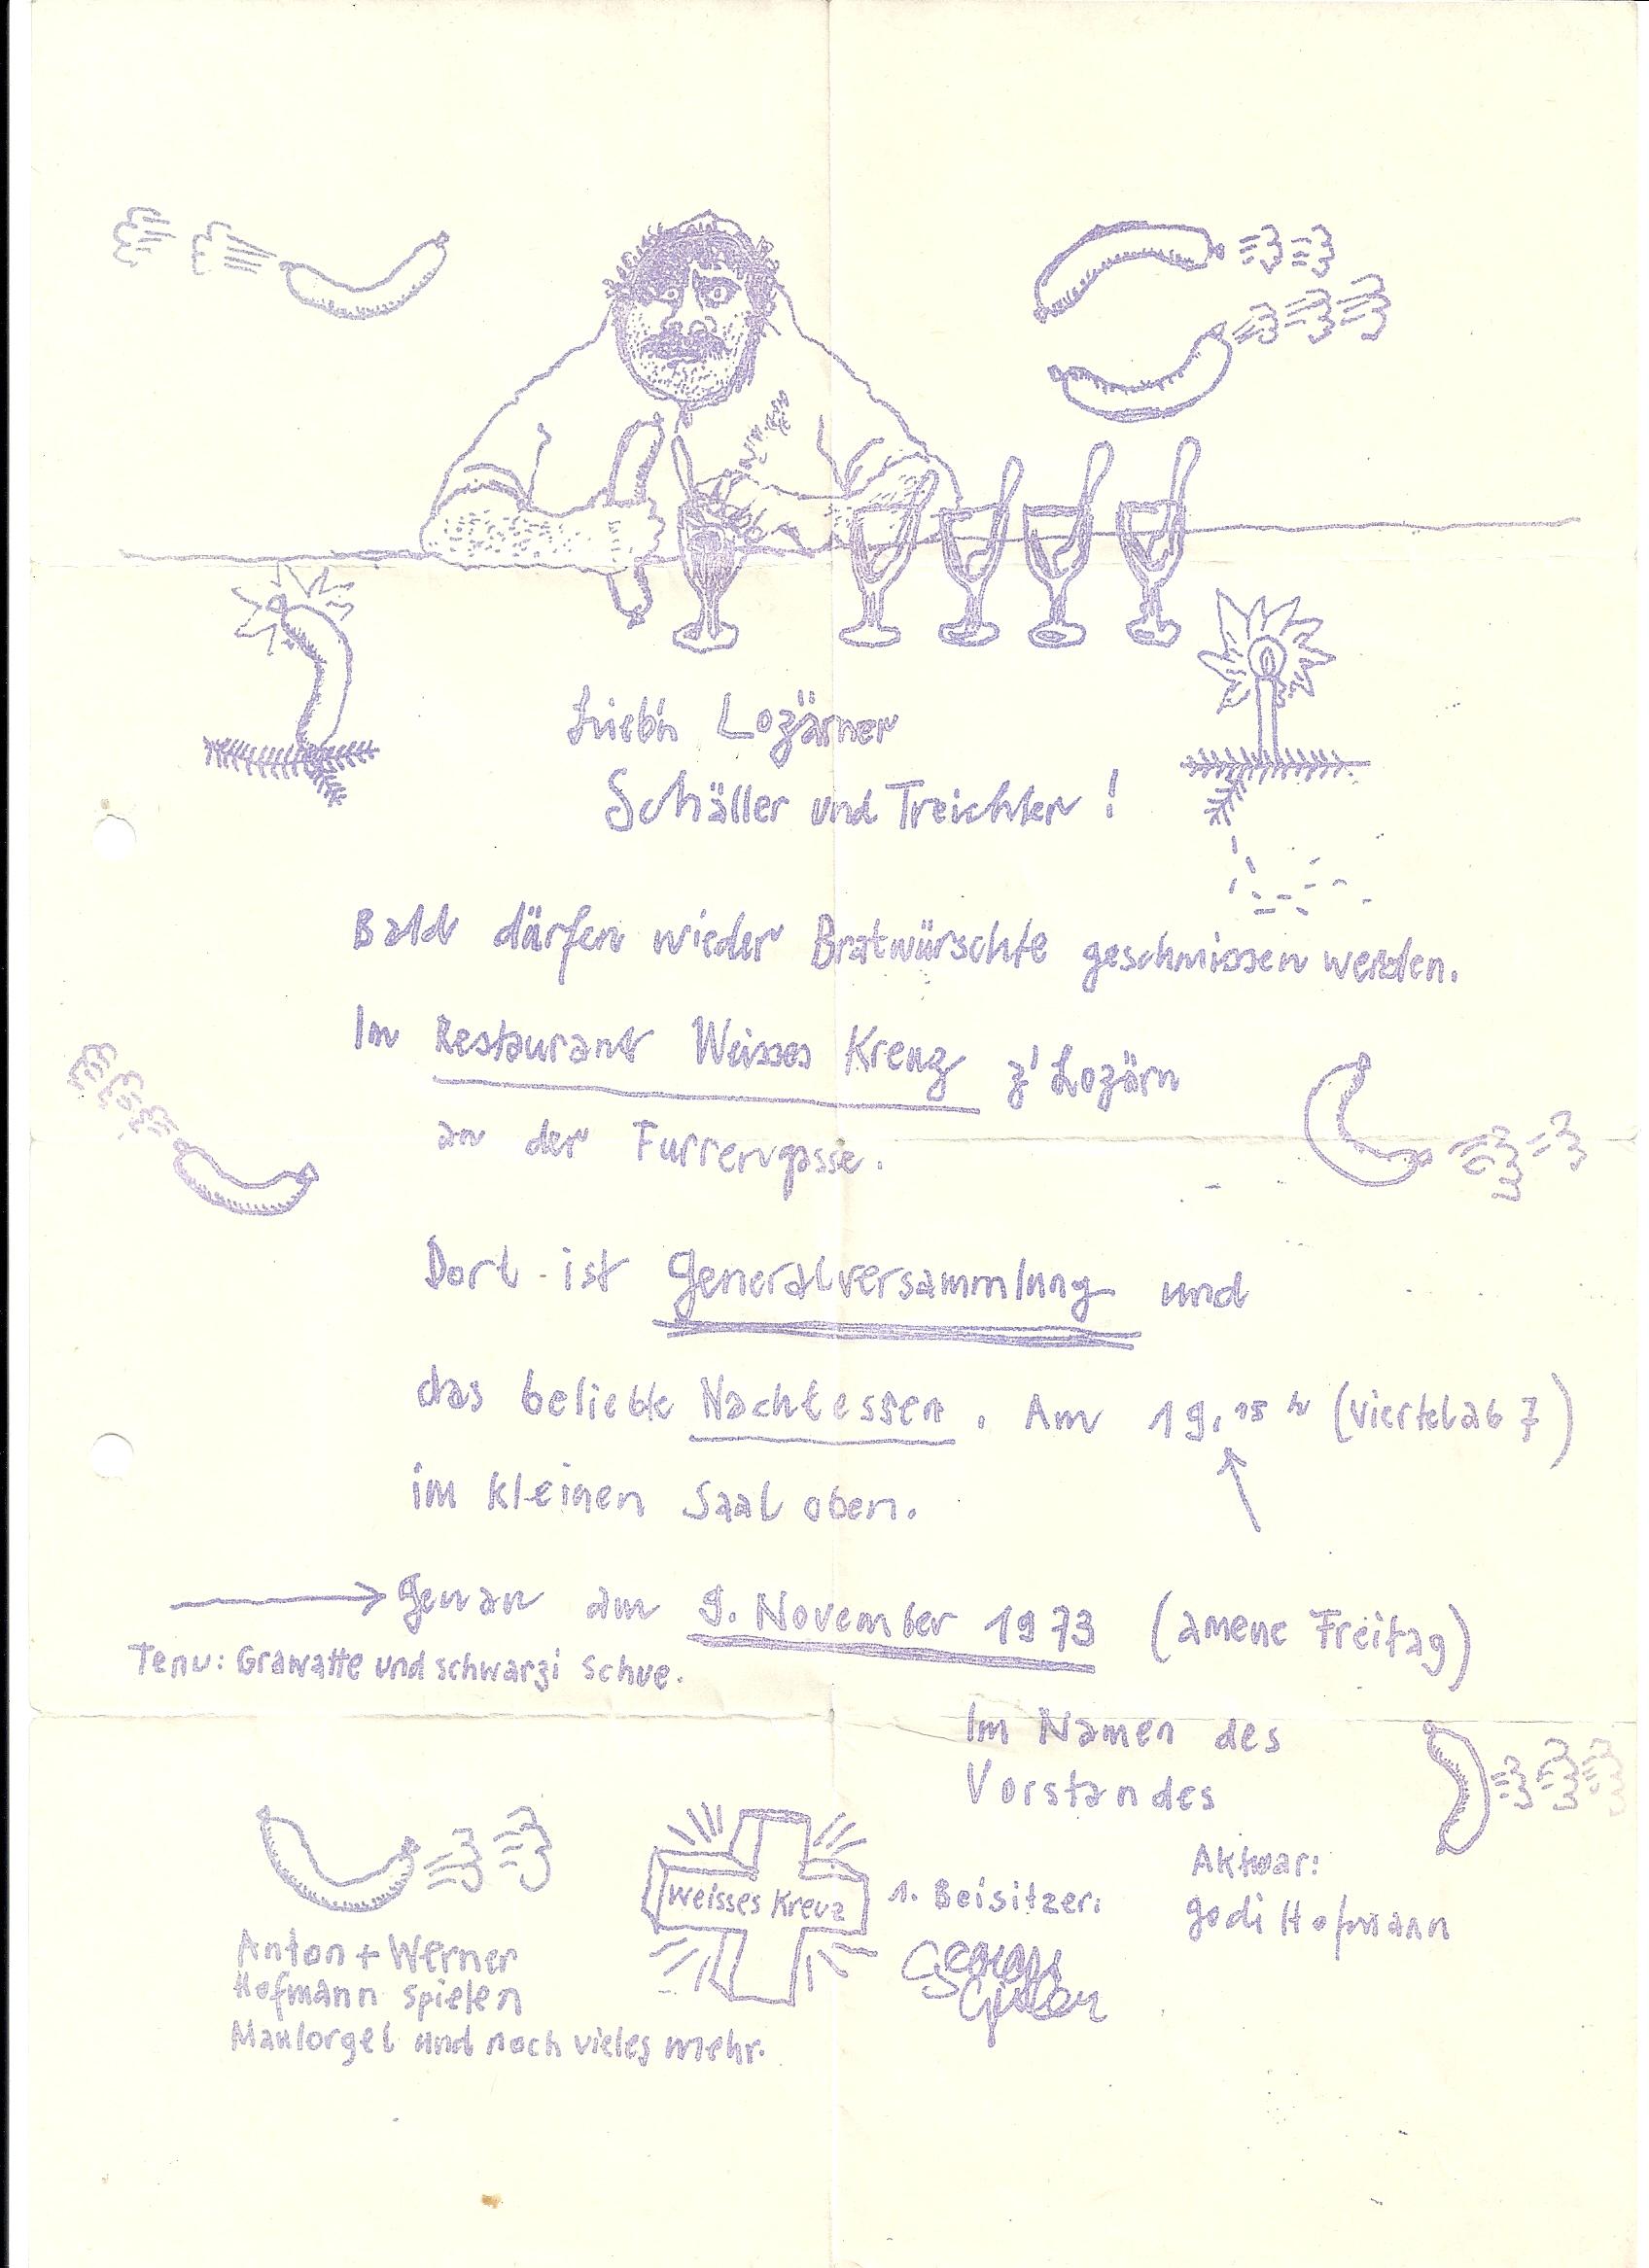 Liebn Lozärner
Schäller und Treichler!
Bald därfen wieder Bratwürschte geschmissen werden.
Im Restaurant Weisses Kreuz z'Lozärn
an der Furrengasse.
Dort ist Generalversammlung und
das beliebte Nachtessen. Am 19.15 h (viertel ab 7)
im kleinen Saal oben.
Genau am 9. November 1973 (amene Freitag)
Tenu: Grawatte und schwarzi Schue.
Im Namen des
Vorstandes
Aktuar:
Godi Hofmann
1. Beisitzer:
Weisses Kreuz
Anton + Werner
Hofmann spielen
Maulorgel und noch vieles mehr.